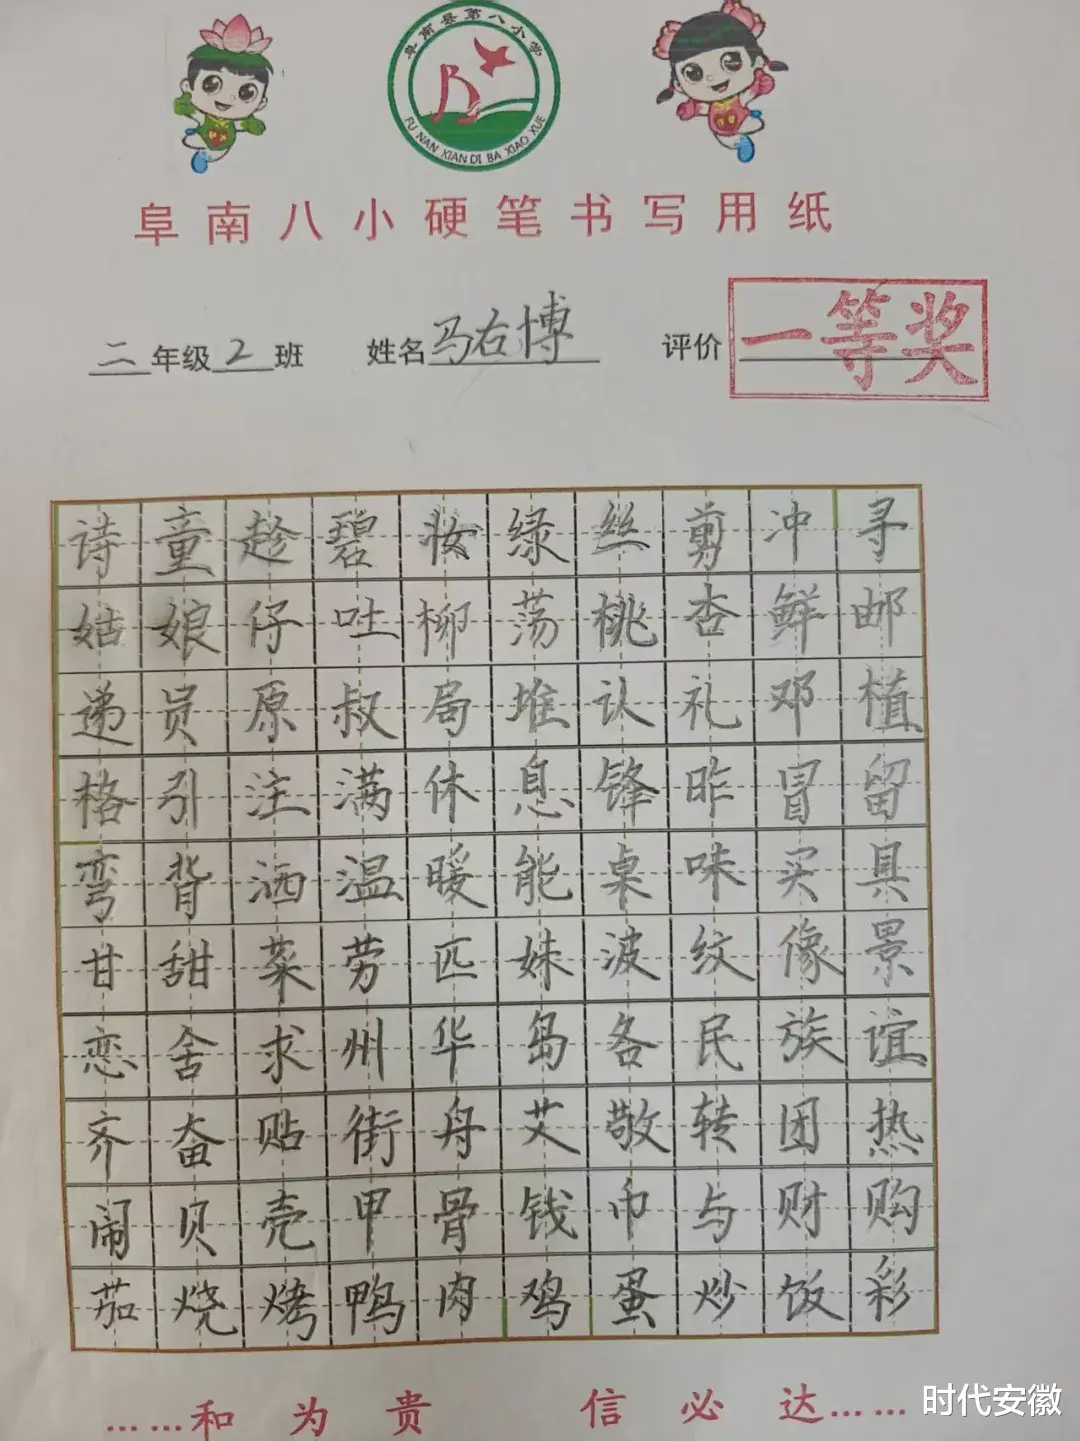 阜南县第八小学
FU NAN XIAN DI BA XIAO XUE
阜南八小硬笔书写用纸
二年级2班 姓名马右博 评价 一等奖
诗童趁碧妆绿丝剪冲寻
姑娘仔吐柳荡桃杏鲜邮
递员原叔局堆认礼邓植
格引注满休息锋昨冒留
弯背洒温暖能桌味买具
甘甜菜劳匹妹波纹像景
恋舍求州华岛各民族谊
齐奋贴街舟艾敬转团热
闹贝壳甲骨钱币与财购
茄烧烤鸭肉鸡蛋炒饭彩
……和为贵 信必达……
时代安徽